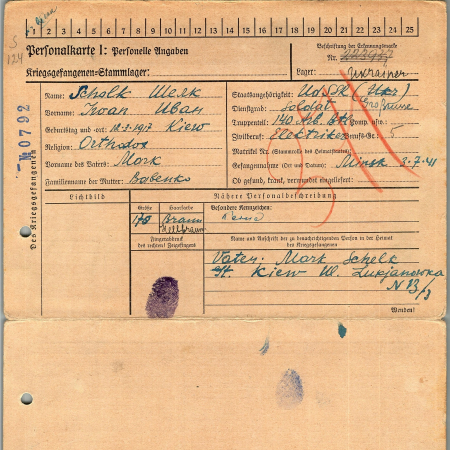 1 2 3 4 5 6 7 8 9 10 11 12 13 14 15 16 17 18 19 20 21 22 23 24 25
Personalkarte I: Personelle Angaben
Beschriftung der Erkennungsmarke
Nr.
Kriegsgefangenen-Stammlager:
Lager: Ukrainer
Des Kriegsgefangenen
№ 0792
Name: Schelk Шелк
Vorname: Iwan Иван
Geburtstag und -ort: 18.3.1917 Kiew
Religion: Orthodox
Vorname des Vaters: Mark
Familienname der Mutter: Babenko
Staatsangehörigkeit: UdSSR (Ukr)
Dienstgrad: Soldat
Truppenteil: 140 Komp. usw.:
Zivilberuf: Elektriker Berufs-Gr.: 5
Matrikel Nr. (Stammrolle des Heimatstaates):
Gefangennahme (Ort und Datum): Minsk 3.7.41
Ob gesund, krank, verwundet eingeliefert:
Lichtbild
Nähere Personalbeschreibung
Größe
Haarfarbe
Besondere Kennzeichen:
178
Braun
Hellbraun
Keine
Fingerabdruck
des rechten! Zeigefingers
Name und Anschrift der zu benachrichtigenden Person in der Heimat
des Kriegsgefangenen
Vater: Mark Schelk
St. Kiew Ul. Lukjanowka
N 13/3
Wenden!